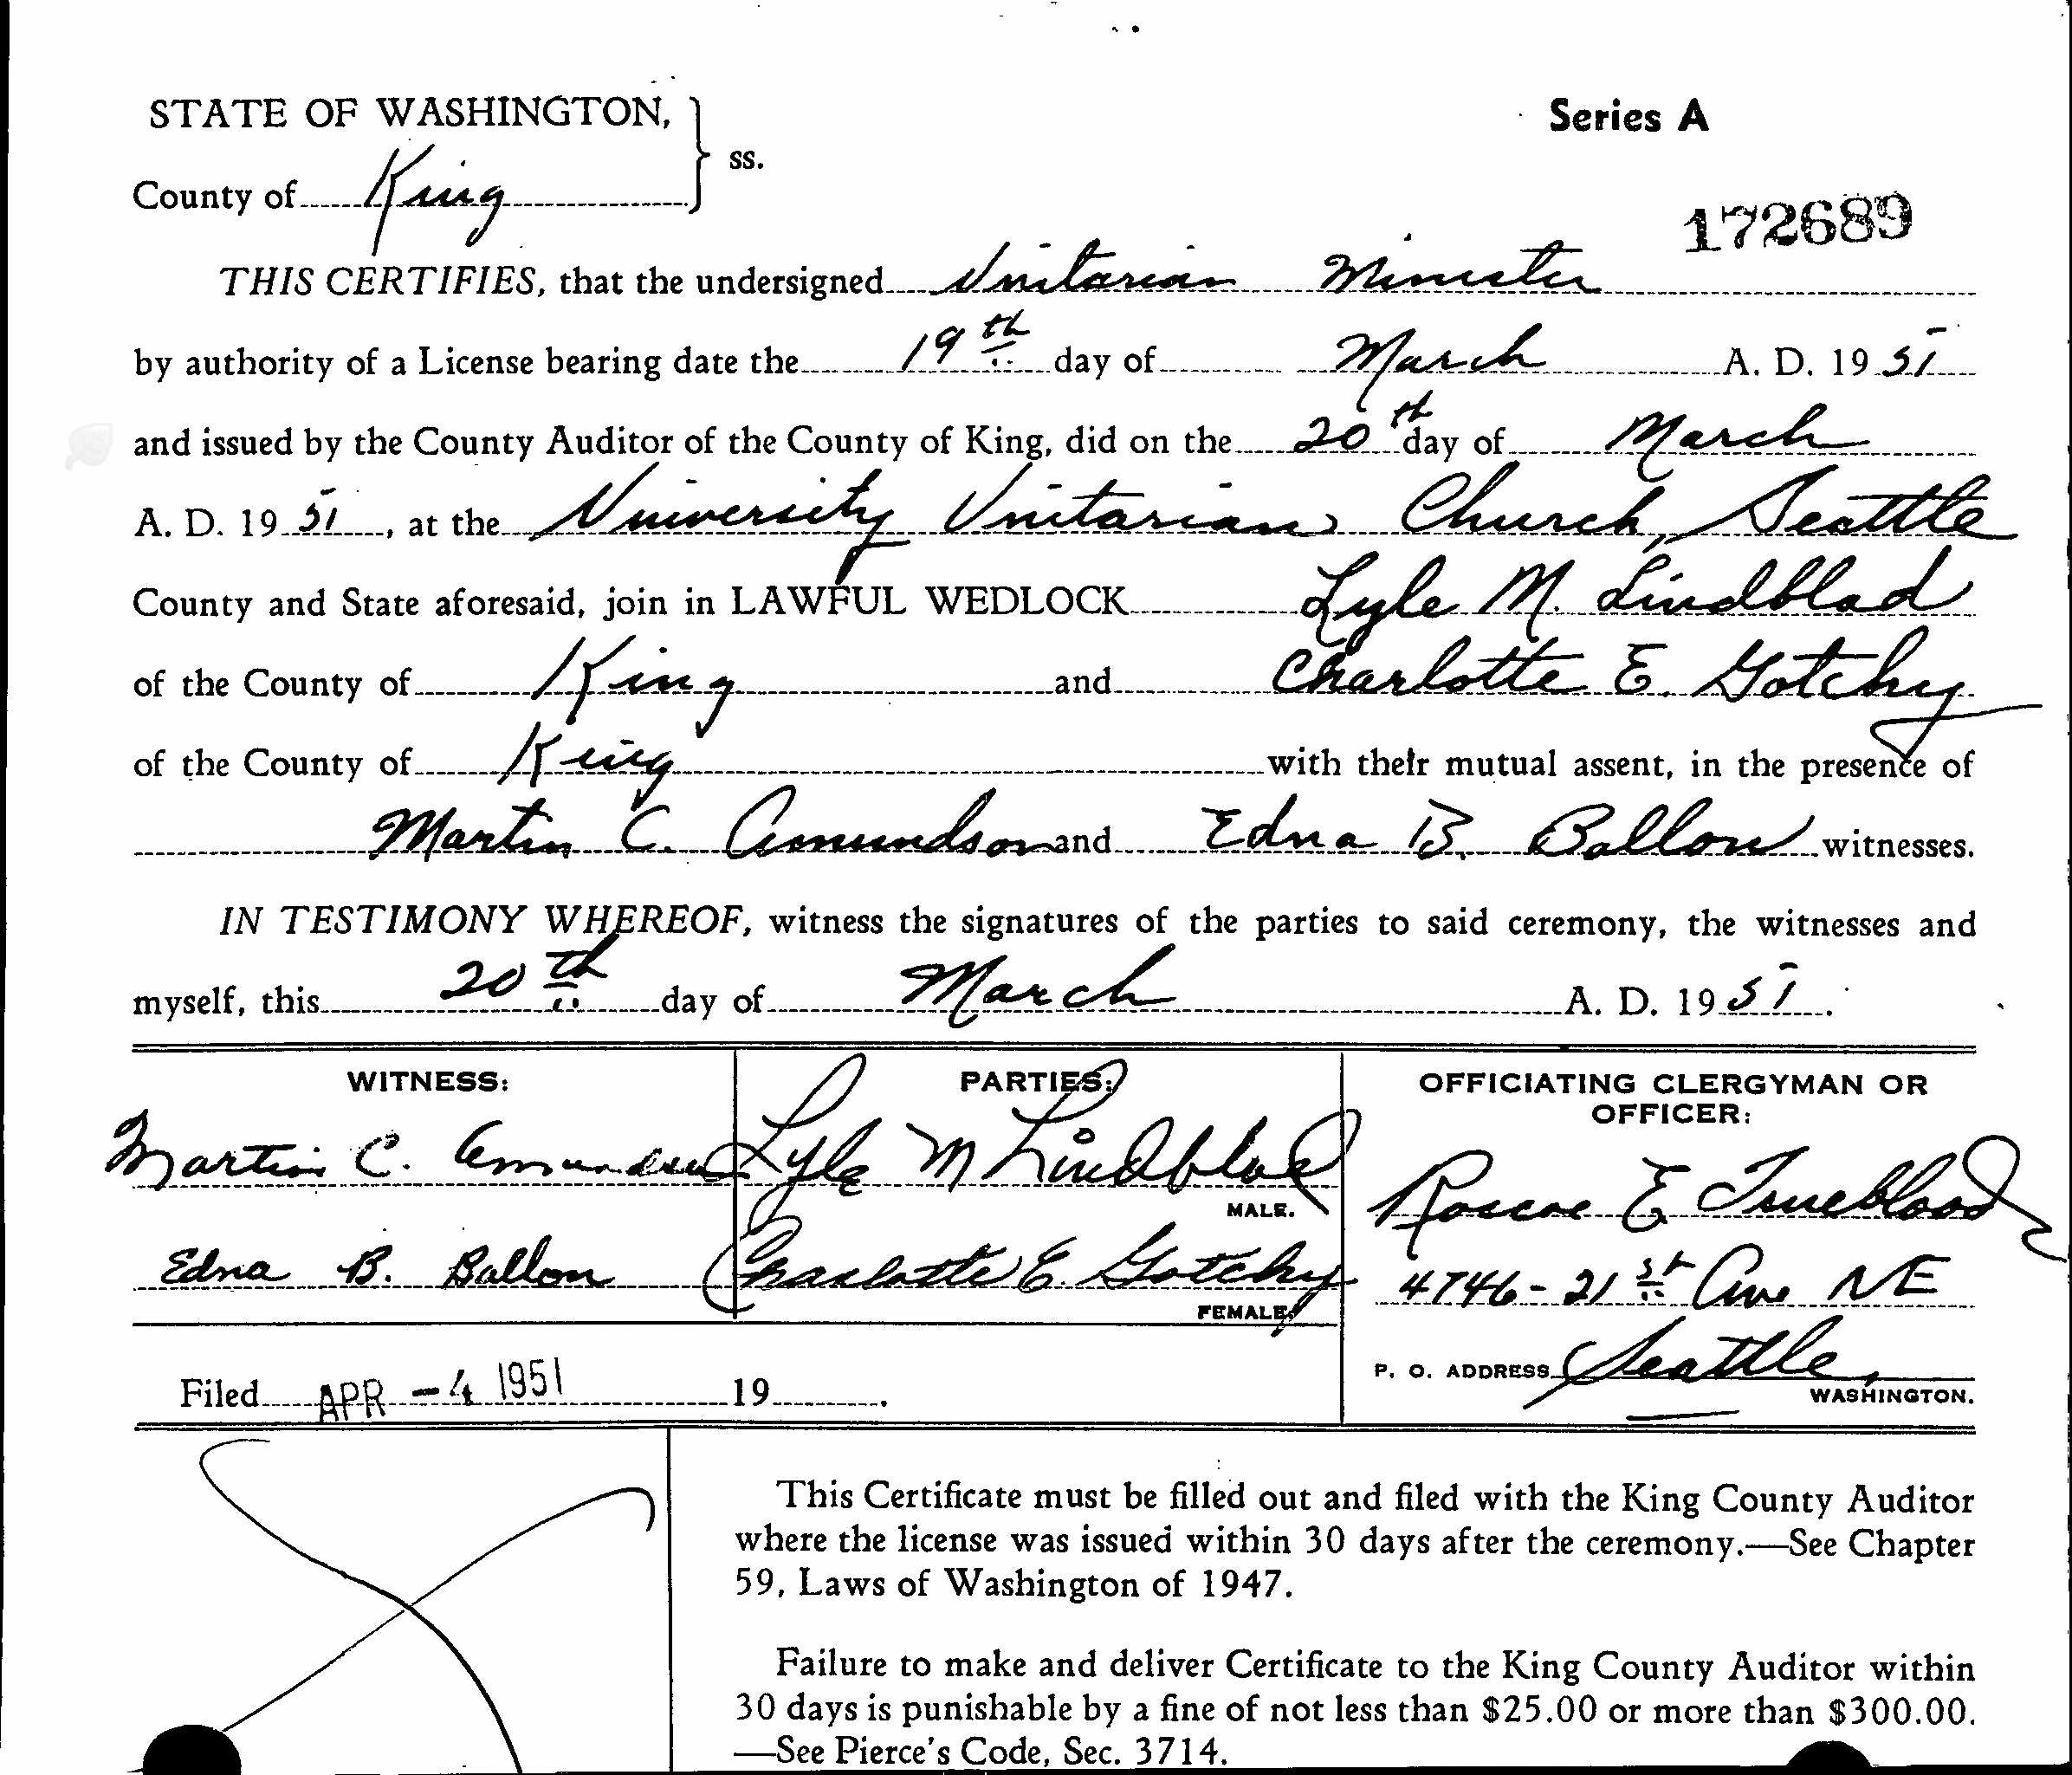 STATE OF WASHINGTON,
Series A
ss.
County of King
172689
THIS CERTIFIES, that the undersigned Unitarian Minister
by authority of a License bearing date the 19th day of March A. D. 19 51
and issued by the County Auditor of the County of King, did on the 20th day of March
A. D. 19 51, at the University Unitarian Church, Seattle
County and State aforesaid, join in LAWFUL WEDLOCK Lyle M. Lindblad
of the County of King and Charlotte E. Gotchy
of the County of King with their mutual assent, in the presence of
Martin C. Amundson and Edna B. Ballow witnesses.
IN TESTIMONY WHEREOF, witness the signatures of the parties to said ceremony, the witnesses and
myself, this 20th day of March A. D. 19 51.
WITNESS:
Martin C. Amundson
Edna B. Ballow
PARTIES:
Lyle M Lindblad
MALE.
Charlotte E. Gotchy
FEMALE.
OFFICIATING CLERGYMAN OR
OFFICER:
Roscoe E Trueblood
4746-21st Ave NE
P. O. ADDRESS Seattle,
WASHINGTON.
Filed APR -4 1951 19 .
This Certificate must be filled out and filed with the King County Auditor
where the license was issued within 30 days after the ceremony.—See Chapter
59, Laws of Washington of 1947.
Failure to make and deliver Certificate to the King County Auditor within
30 days is punishable by a fine of not less than $25.00 or more than $300.00.
—See Pierce's Code, Sec. 3714.